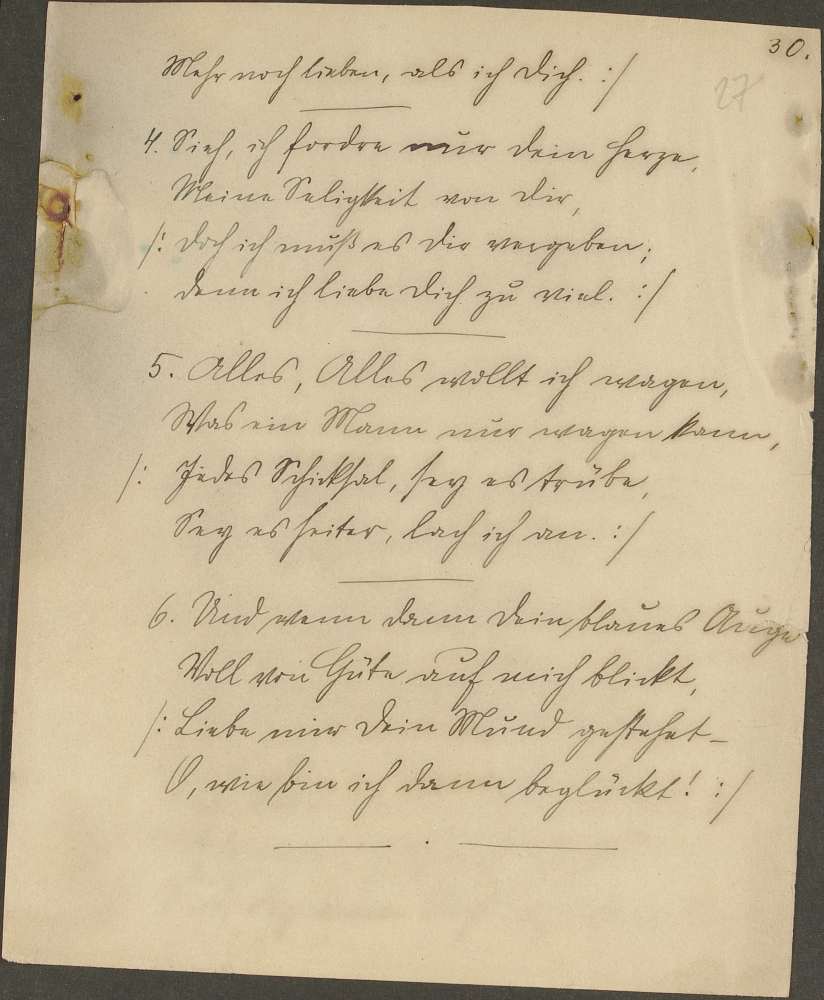 30.
27
Mehr noch lieben, als ich Dich. :/
4. Sieh, ich fordre nur Dein Herze,
Meine Seligkeit von Dir,
/: Doch ich muß es Dir vergeben;
denn ich liebe Dich zu viel. :/
5. Alles, Alles wollt ich wagen,
Was ein Mann nur wagen kann,
/: Jedes Schicksal, sey es trübe,
Sey es heiter, lach ich an. :/
6. Und wenn dann Dein blaues Auge
Voll von Güte auf mich blickt,
/: Liebe mir Dein Mund gestehet –
O, wie bin ich dann beglückt! :/